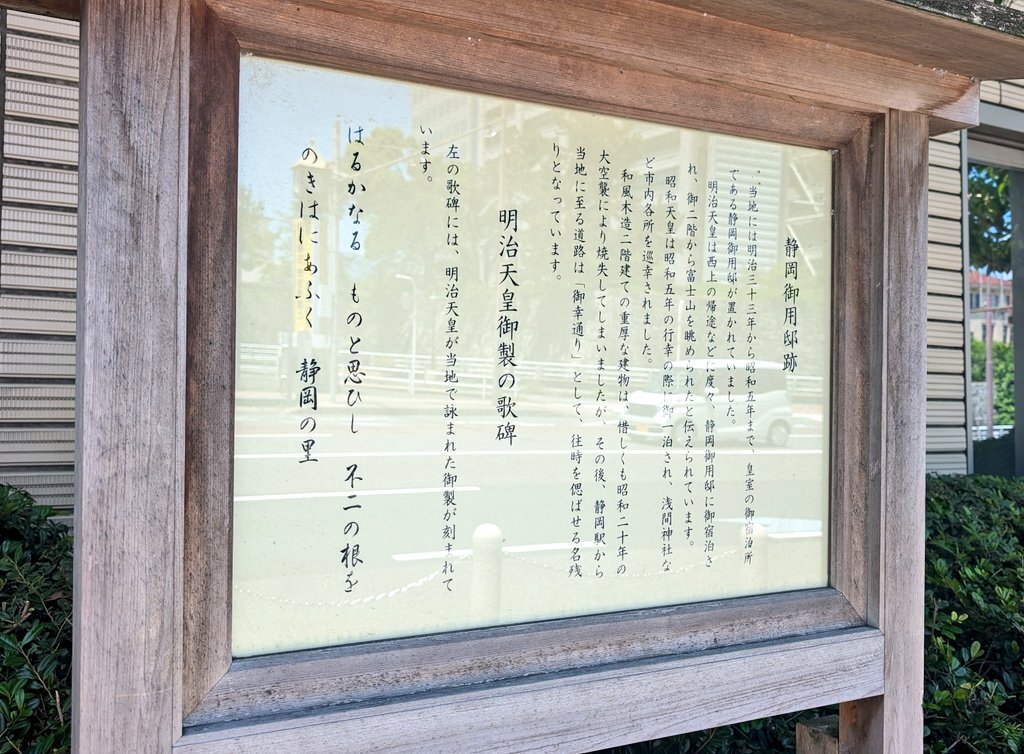 静岡御用邸跡
当地には明治三十三年から昭和五年まで、皇室の御宿泊所
である静岡御用邸が置かれていました。
明治天皇は西上の帰途などに度々、静岡御用邸に御宿泊さ
れ、御二階から富士山を眺められたと伝えられています。
昭和天皇は昭和五年の行幸の際に御一泊され、浅間神社な
ど市内各所を巡幸されました。
和風木造二階建ての重厚な建物は、惜しくも昭和二十年の
大空襲により焼失してしまいましたが、その後、静岡駅から
当地に至る道路は「御幸通り」として、往時を偲ばせる名残
りとなっています。
明治天皇御製の歌碑
左の歌碑には、明治天皇が当地で詠まれた御製が刻まれて
います。
はるかなる ものと思ひし 不二の根を
のきはにあふく 静岡の里